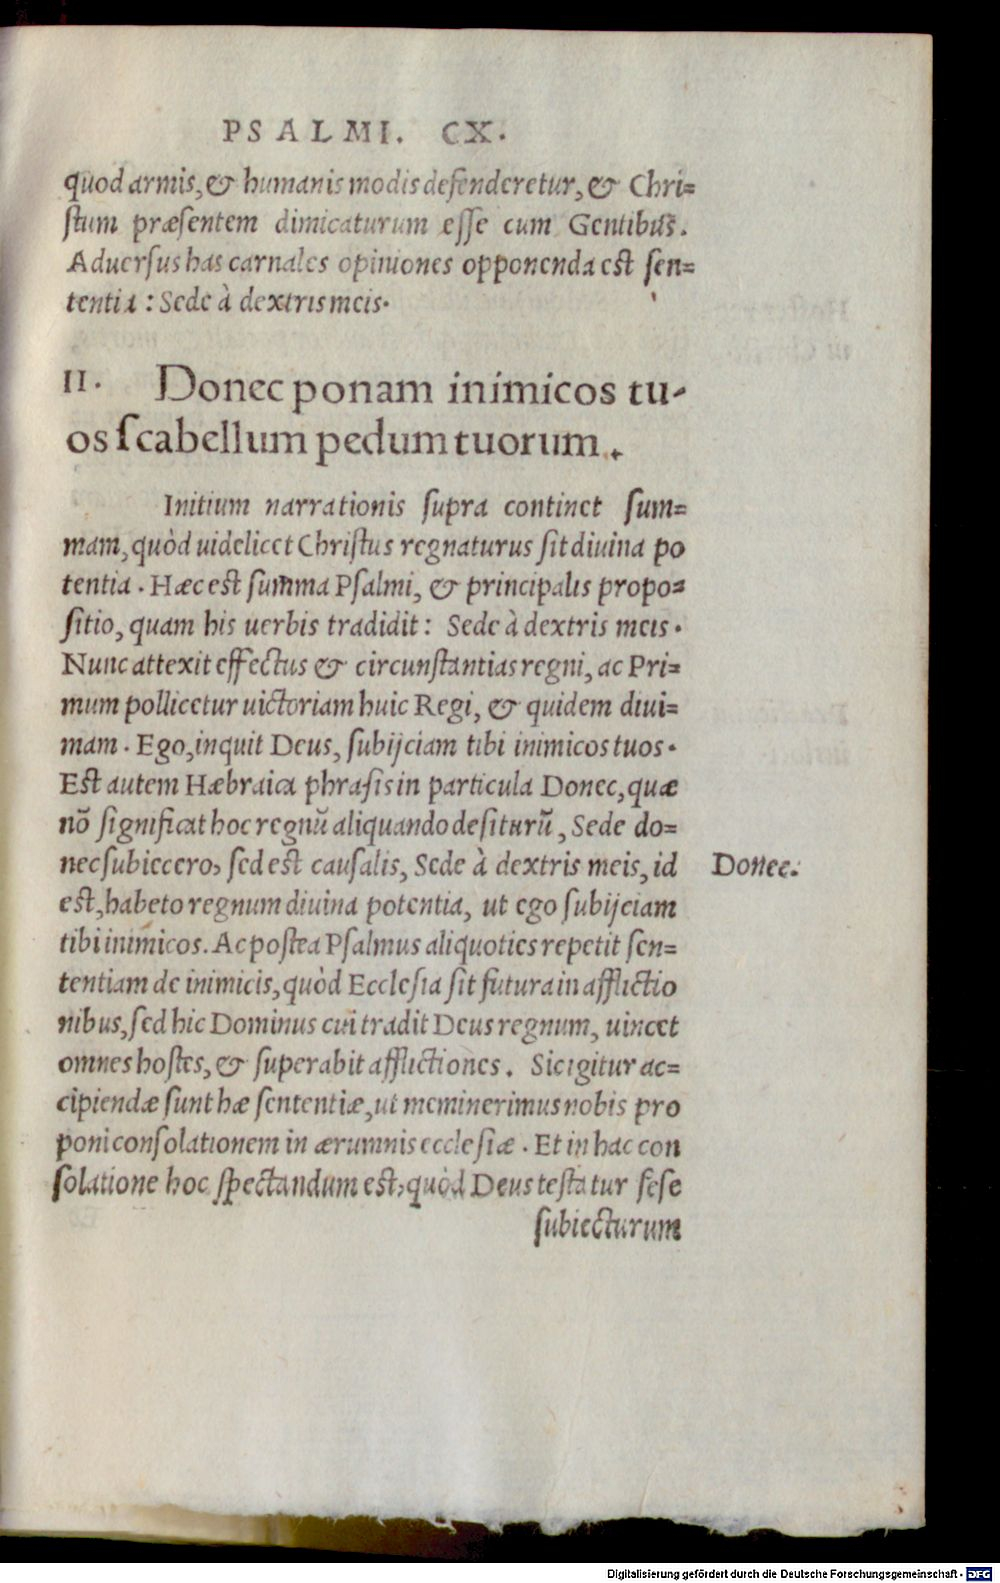 PSALMI. CX.
quod armis, & humanis modis defenderetur, & Chri=
stum præsentem dimicaturum esse cum Gentibus.
Aduersus has carnales opiniones opponenda est sen=
tentia: Sede à dextris meis.
II. Donec ponam inimicos tu-
os scabellum pedum tuorum.
Initium narrationis supra continet sum=
mam, quòd uidelicet Christus regnaturus sit diuina po
tentia. Hæc est summa Psalmi, & principalis propo=
sitio, quam his uerbis tradidit: Sede à dextris meis.
Nunc attexit effectus & circunstantias regni, ac Pri=
mum pollicetur uictoriam huic Regi, & quidem diui=
mam. Ego, inquit Deus, subijciam tibi inimicos tuos.
Est autem Hæbraica phrasis in particula Donec, quæ
nō significat hoc regnū aliquando desiturū, Sede do=
nec subiecero, sed est causalis, Sede à dextris meis, id
Donec.
est, habeto regnum diuina potentia, ut ego subijciam
tibi inimicos. Ac postea Psalmus aliquoties repetit sen=
tentiam de inimicis, quòd Ecclesia sit futura in afflictio
nibus, sed hic Dominus cui tradit Deus regnum, uincet
omnes hostes, & superabit afflictiones. Sic igitur ac=
cipiendæ sunt hæ sententiæ, ut meminerimus nobis pro
poni consolationem in ærumnis ecclesiæ. Et in hac con
solatione hoc spectandum est, quòd Deus testatur sese
subiecturum
Digitalisierung gefördert durch die Deutsche Forschungsgemeinschaft - DFG